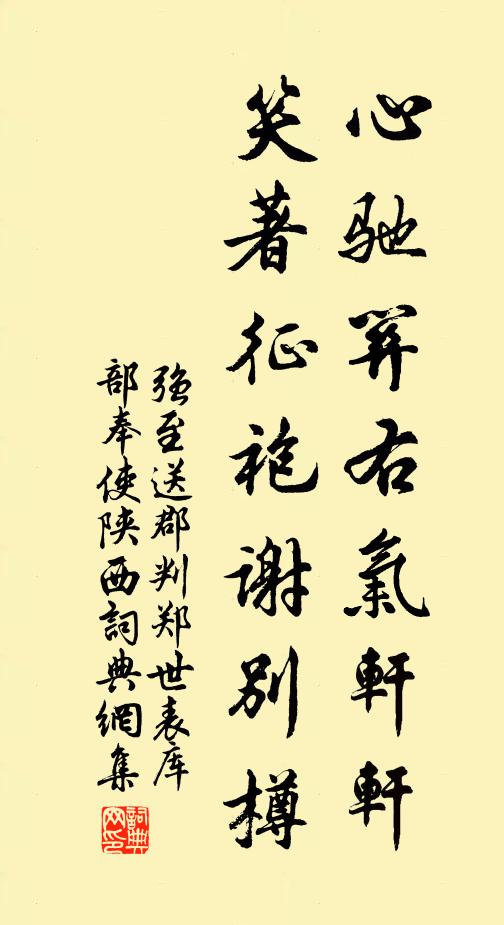 心驰關右氣軒軒
笑著征袍谢别樽
强至送郡判郑世表库
部奉使陕西詞典網集
詞典网印